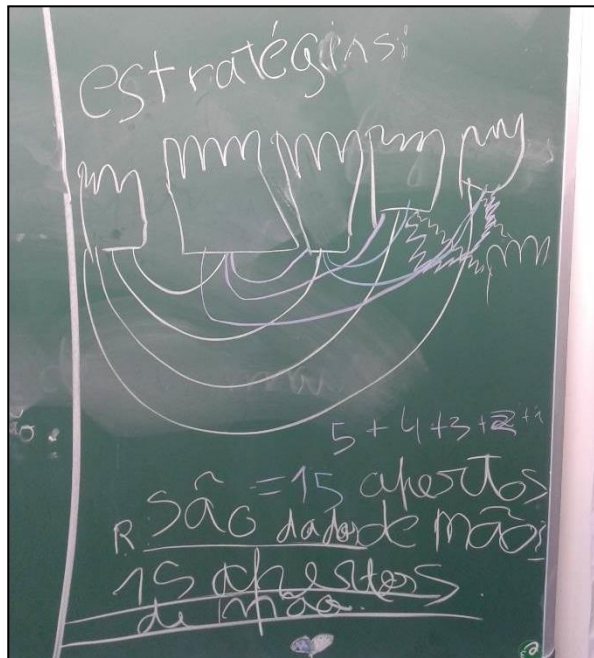 estratégias:
5 + 4 + 3 + 2 + 1
= 15 apertos
R São dados de mãos
15 apertos
de mão.